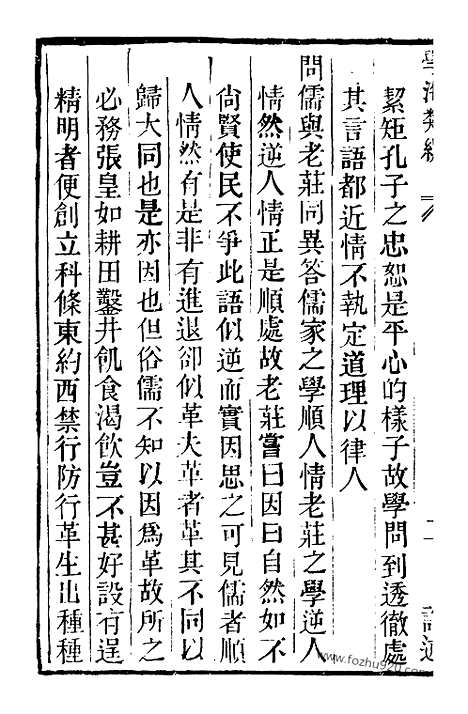 絜矩孔子之忠恕是平心的樣子故學問到透徹處
其言語都近情不執定道理以律人
問儒與老莊同異答儒家之學順人情老莊之學逆人
情然逆人情正是順處故老莊嘗曰因曰自然如不
尙賢使民不爭此語似逆而實因思之可見儒者順
人情然有是非有進退卻似革夫革者革其不同以
歸大同也是亦因也但俗儒不知以因爲革故所之
必務張皇如耕田鑿井飢食渴飲豈不甚好設有逞
精明者便創立科條東約西禁行防行革生出種種
www.fozhu920.com